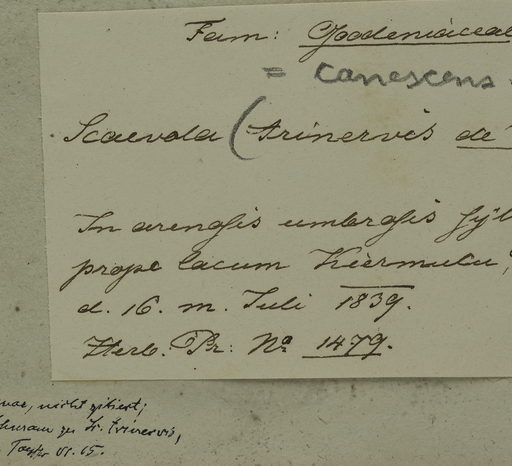 Fam: Goodeniaceae
= canescens
Scaevola (trinervis de
In arenosis umbrosis sÿl
prope lacum Kiermulu,
d. 16. m. Juli 1839.
Herb. Pr: No. 1479.
nicht zitiert;
zu Sc. trinervis,